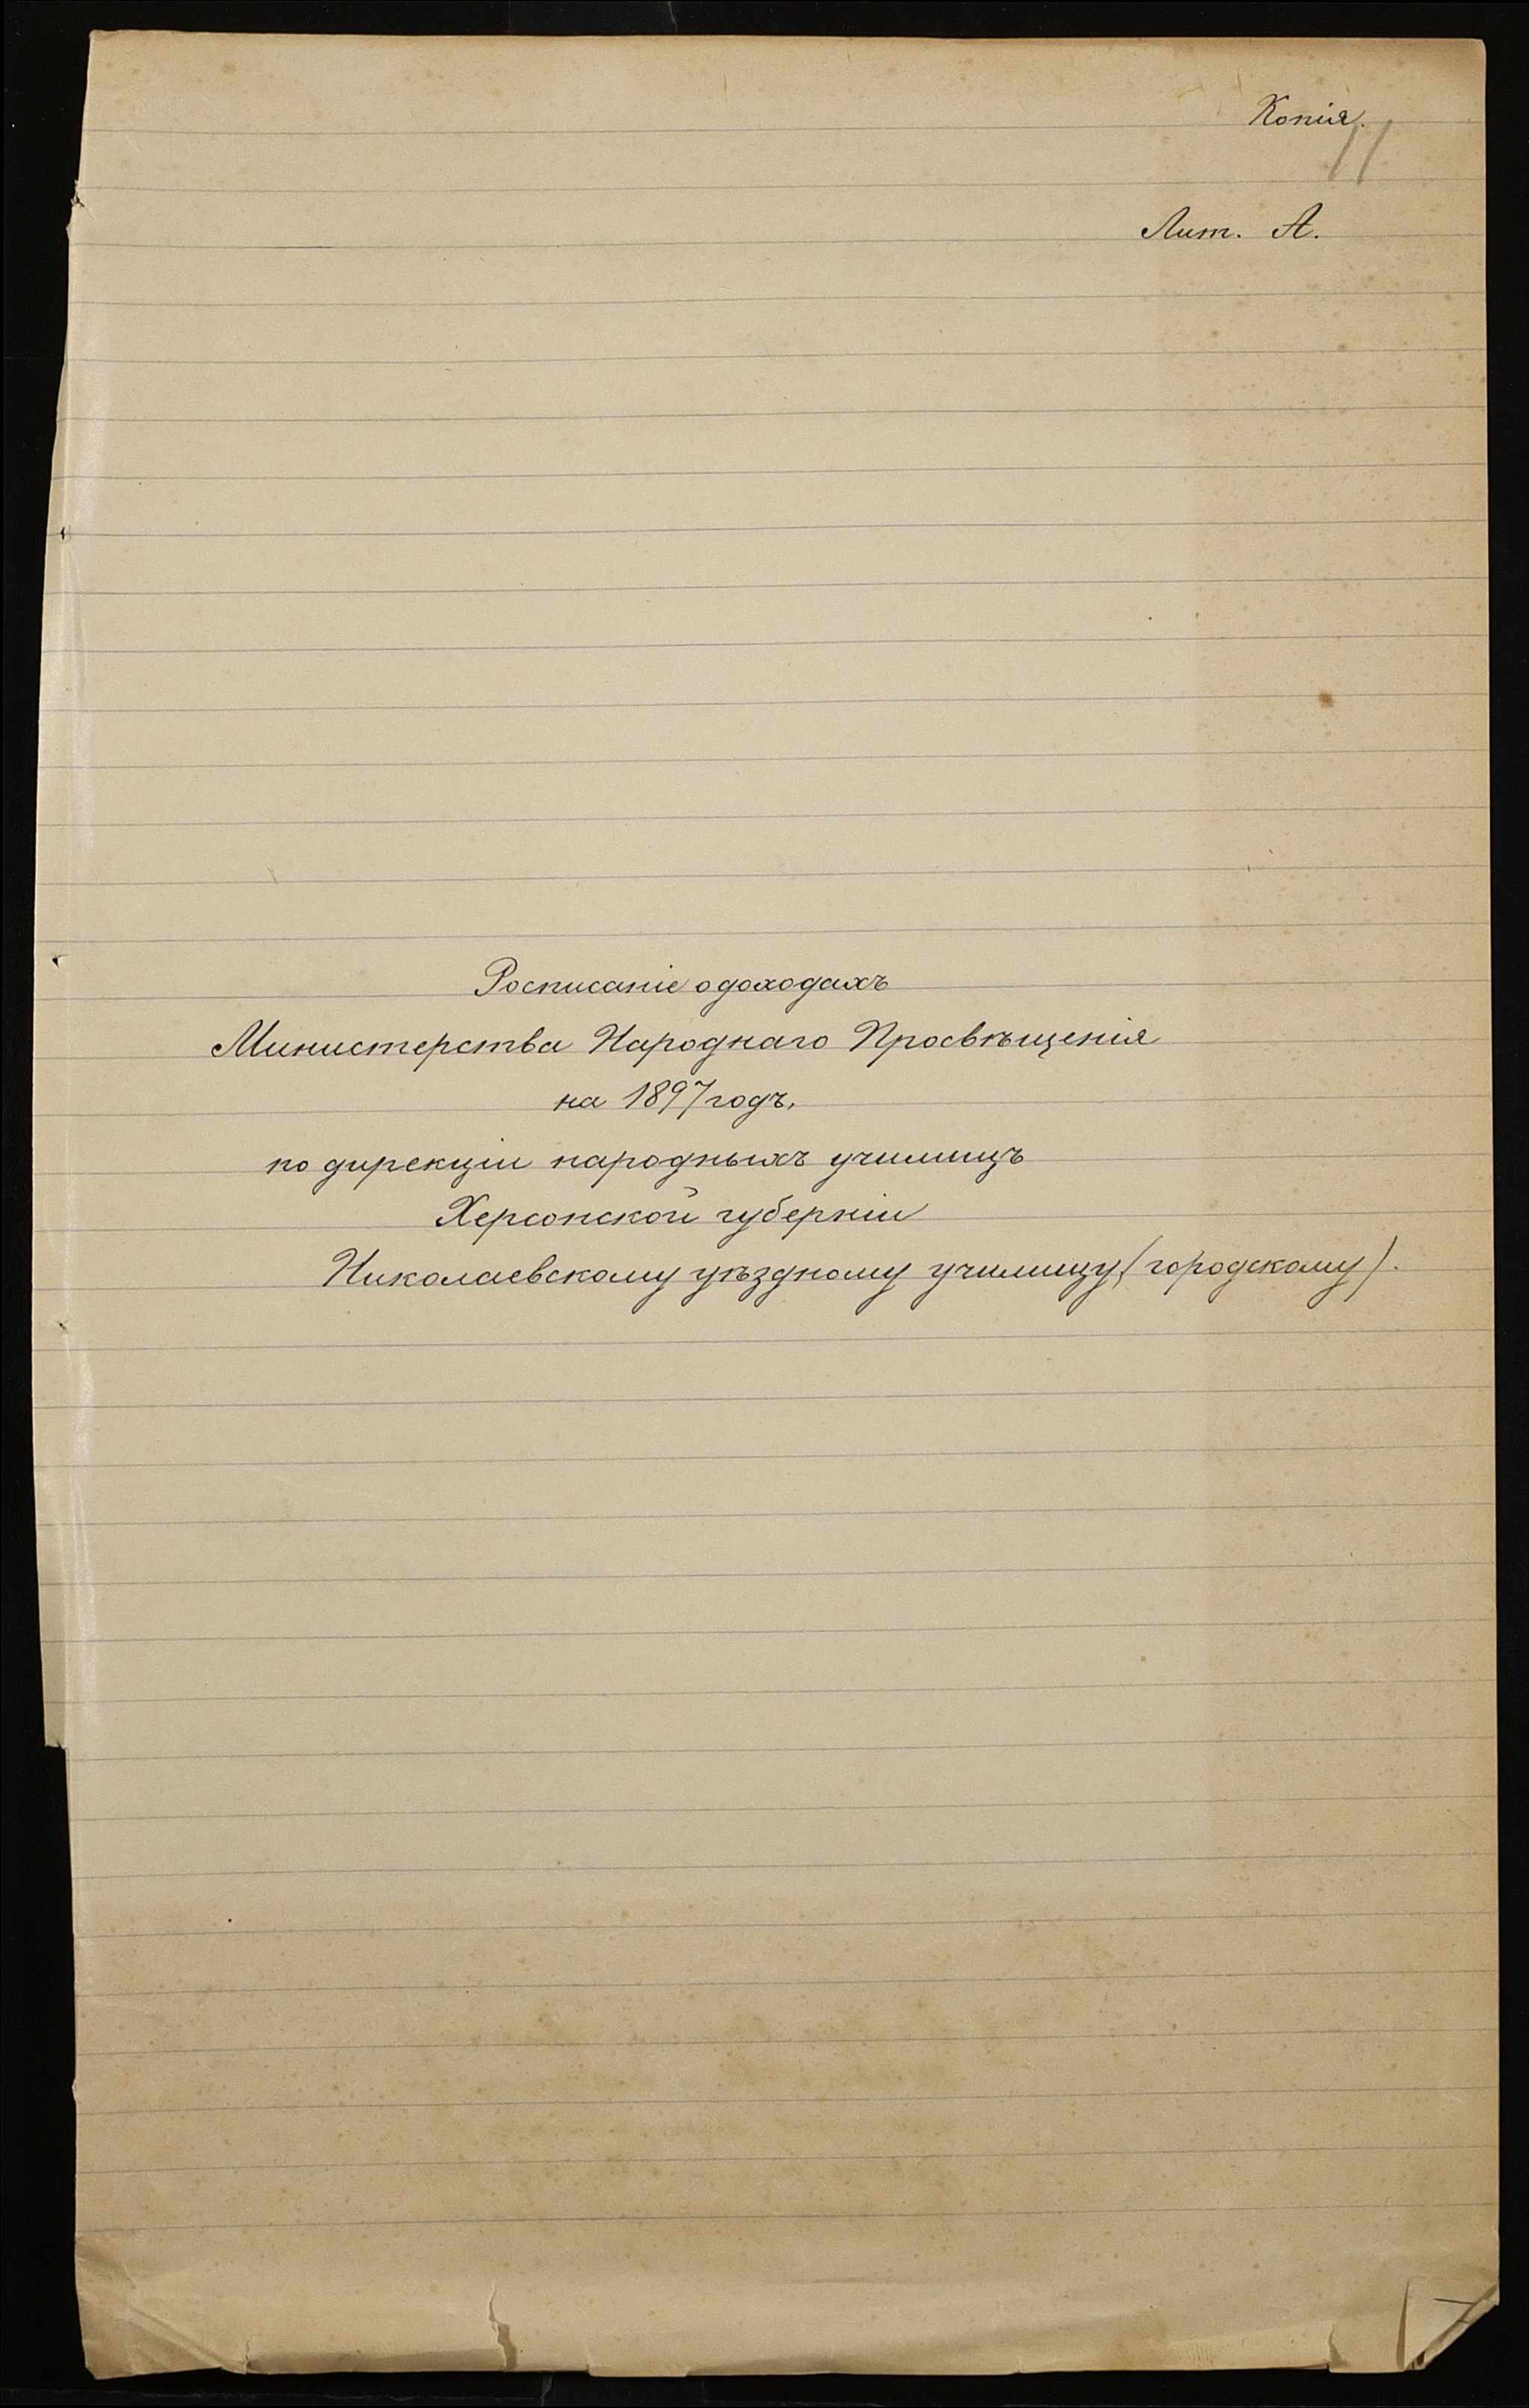 Копія.
11
Лит. А.
Росписаніе о доходахъ
Министерства Народнаго Просвѣщенія
на 1897 годъ,
по дирекціи народныхъ училищъ
Херсонской губерніи
Николаевскому уѣздному училищу (городскому).